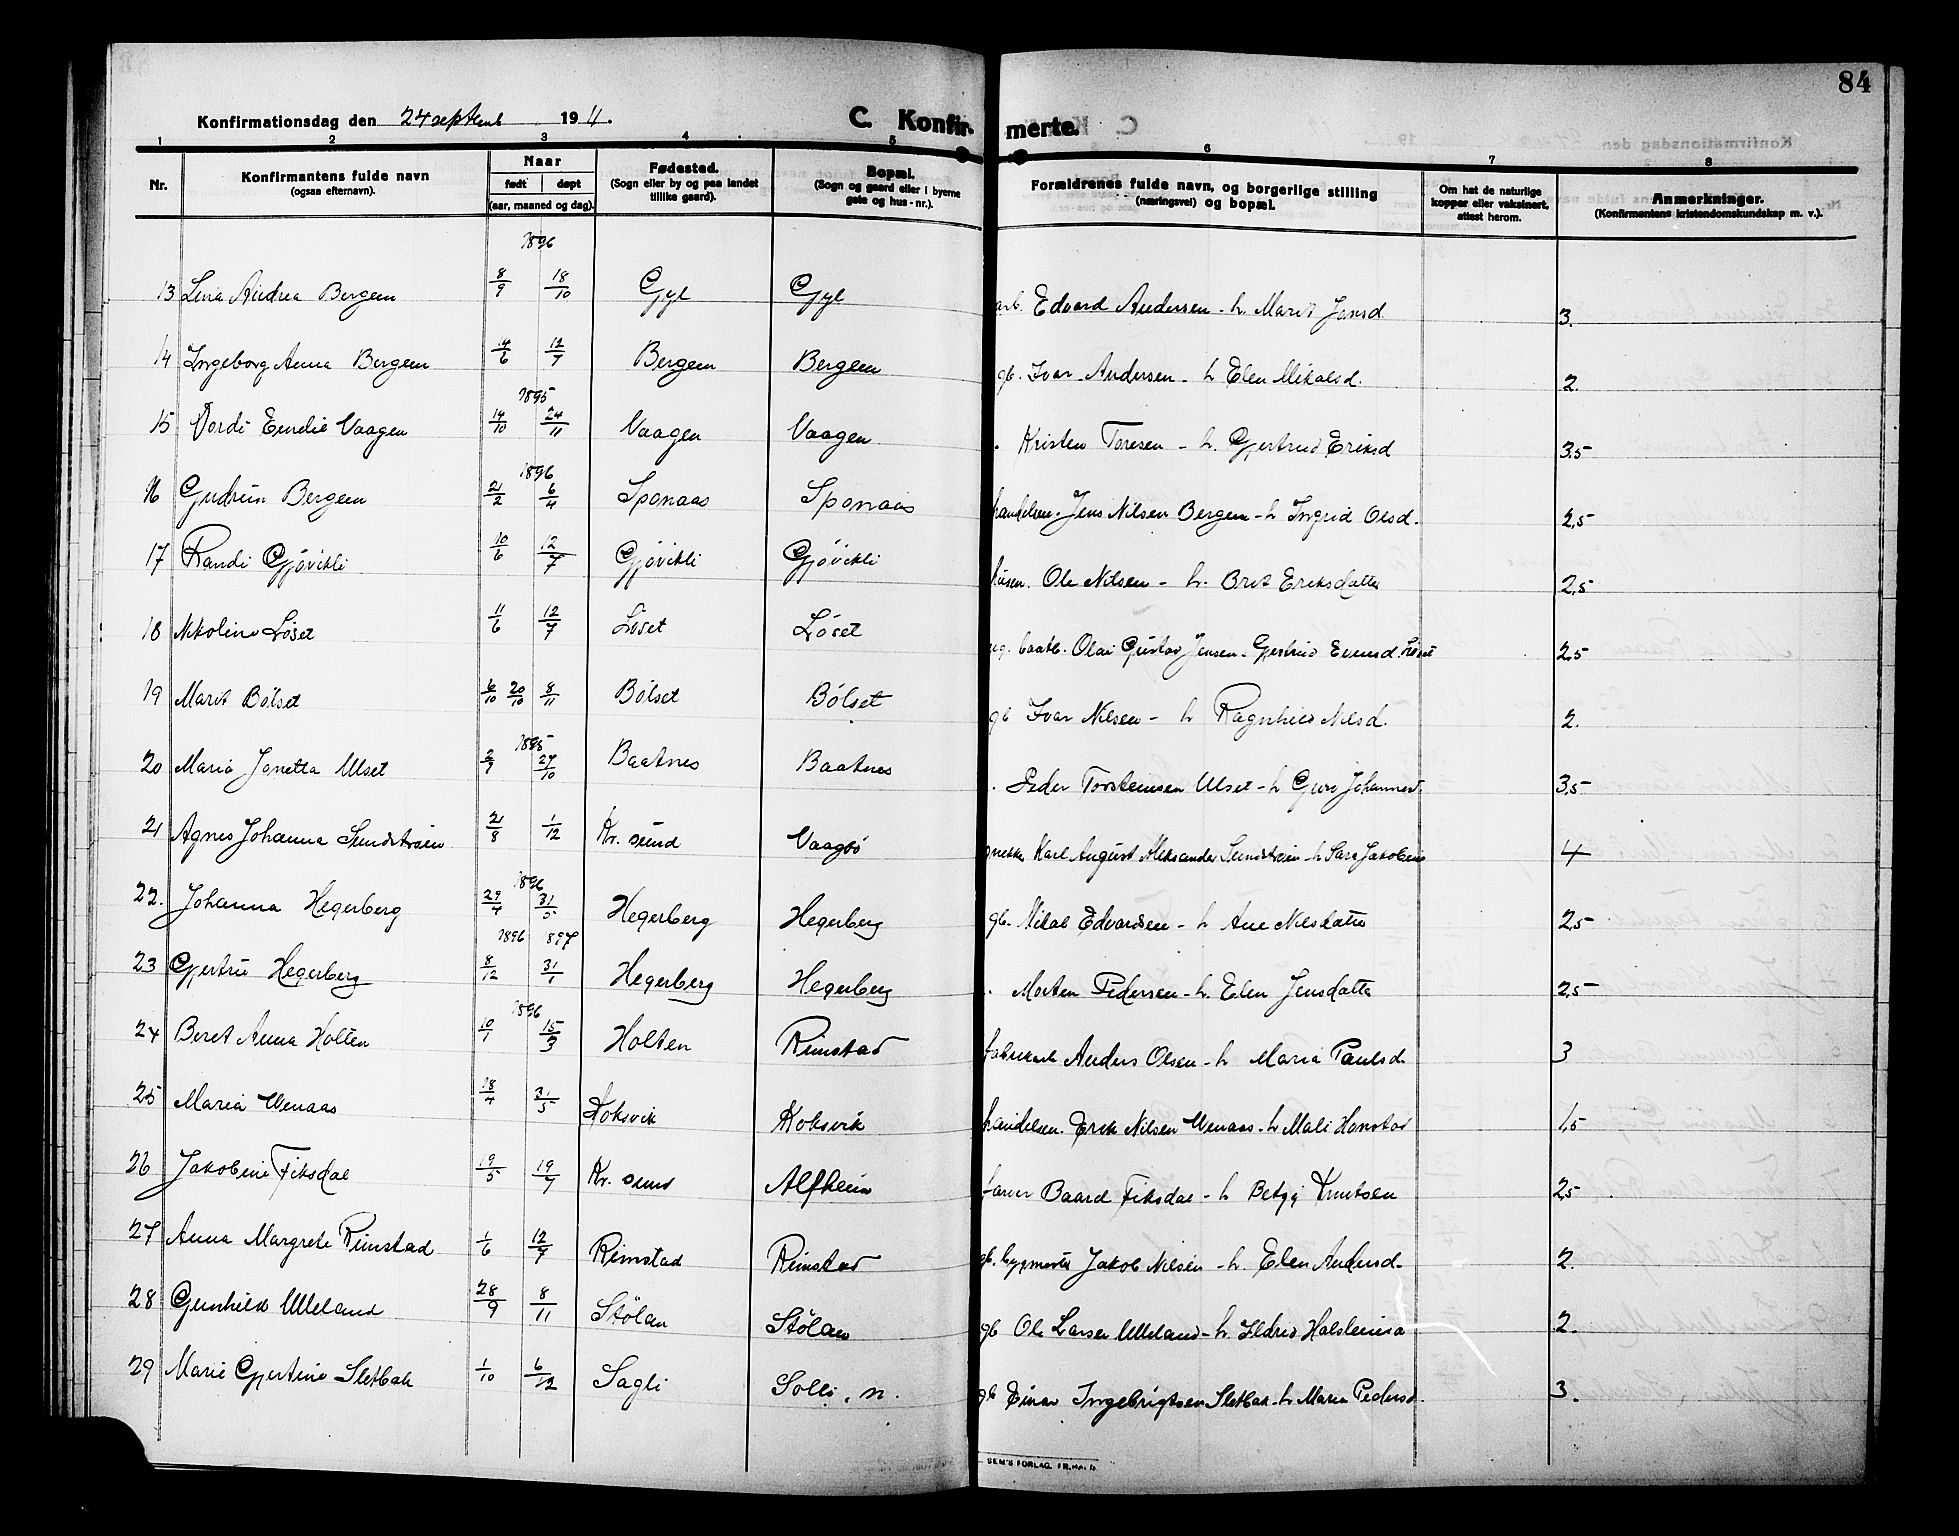 84
Konfirmationsdag den 24 septemb 1911.
C. Konfirmerte.
1 2 3 4 5 6 7 8
Nr.
Konfirmantens fulde navn
(ogsaa efternavn).
Naar
født døpt
(aar, maaned og dag).
Fødested.
(Sogn eller by og paa landet
tillike gaard).
Bopæl.
(Sogn og gaard eller i byerne
gate og hus-nr.).
Forældrenes fulde navn, og borgerlige stilling
(næringsvei) og bopæl.
Om hat de naturlige
kopper eller vaksinert,
attest herom.
Anmerkninger.
(Konfirmantens kristendomskundskap m. v.).
1896
13 Lina Andrea Bergem 8/9 18/10 Gyl Gyl arb. Edvard Andersen - h. Marit Jonsd 3.
14 Ingeborg Anna Bergem 14/6 12/7 Bergem Bergem gb. Ivar Andersen - h Elen Mikalsd. 2.
1895
15 Dordi Emelie Vaagen 14/10 24/11 Vaagen Vaagen Kristen Toresen - h. Gjertrud Eriksd 3.5
1896
16 Gudrun Bergem 21/2 6/4 Sponaas Sponaas handelsm. Jens Nilsen Bergem - h Ingrid Olsd. 2,5
17 Randi Gjövikli 10/6 12/7 Gjövikli Gjövikli husm. Ole Nilsen - h. Brit Eriksdatter 2,5
18 Nikoline Löset 11/6 12/7 Löset Löset ug. baatb. Olai Gustav Jensen - Gjertrud Evensd. Löset 2,5
19 Marit Bölset 6/10 20/10 8/11 Bölset Bölset gb Ivar Nilsen - h Ragnhild Nilsd. 2.
1895
20 Maria Jonetta Ulset 2/9 27/10 Baatnes Baatnes Peder Torsteinsen Ulset - h Guro Johannesd. 3,5
21 Agnes Johanna Sundström 21/8 1/12 Kr. sund Vaagbö Karl August Aleksander Sundström - h Sara Jakobine 4
1896
22. Johanna Hegerberg 29/4 31/5 Hegerberg Hegerberg gb. Mikal Edvardsen - h Ane Nilsdatter 2,5
1896 1897
23 Gjertru Hegerberg 8/12 31/1 Hegerberg Hegerberg Morten Pedersen - h. Elen Jensdatter 2,5
1896
24 Beret Anna Holten 10/1 15/3 Holten Rimstad fabrikarb Anders Olsen - h Maria Paulsd. 3
25 Maria Wenaas 18/4 31/5 Koksvik Koksvik handelsm. Erik Nilsen Wenaas - h Mali Hanstad 1,5
26 Jakobine Fiksdal 19/5 19/7 Kr. sund Alfheim farver Baard Fiksdal - h Betzy Knutsen 2,5
27 Anna Margrete Rimstad 1/6 12/7 Rimstad Rimstad gb. bygmester Jakob Nilsen - h. Elen Andersd. 2.
28 Gunhild Ulleland 28/9 8/11 Stölan Stölan gb Ole Larsen Ulleland - h. Ildrid Halsteinsd 2.
29 Marie Gjertine Sletbak 1/10 6/12 Sagli Solli, n. gb Einar Ingebrigtsen Sletbak - h Maria Pedersd. 3.
SEM'S FORLAG, FR.HALD